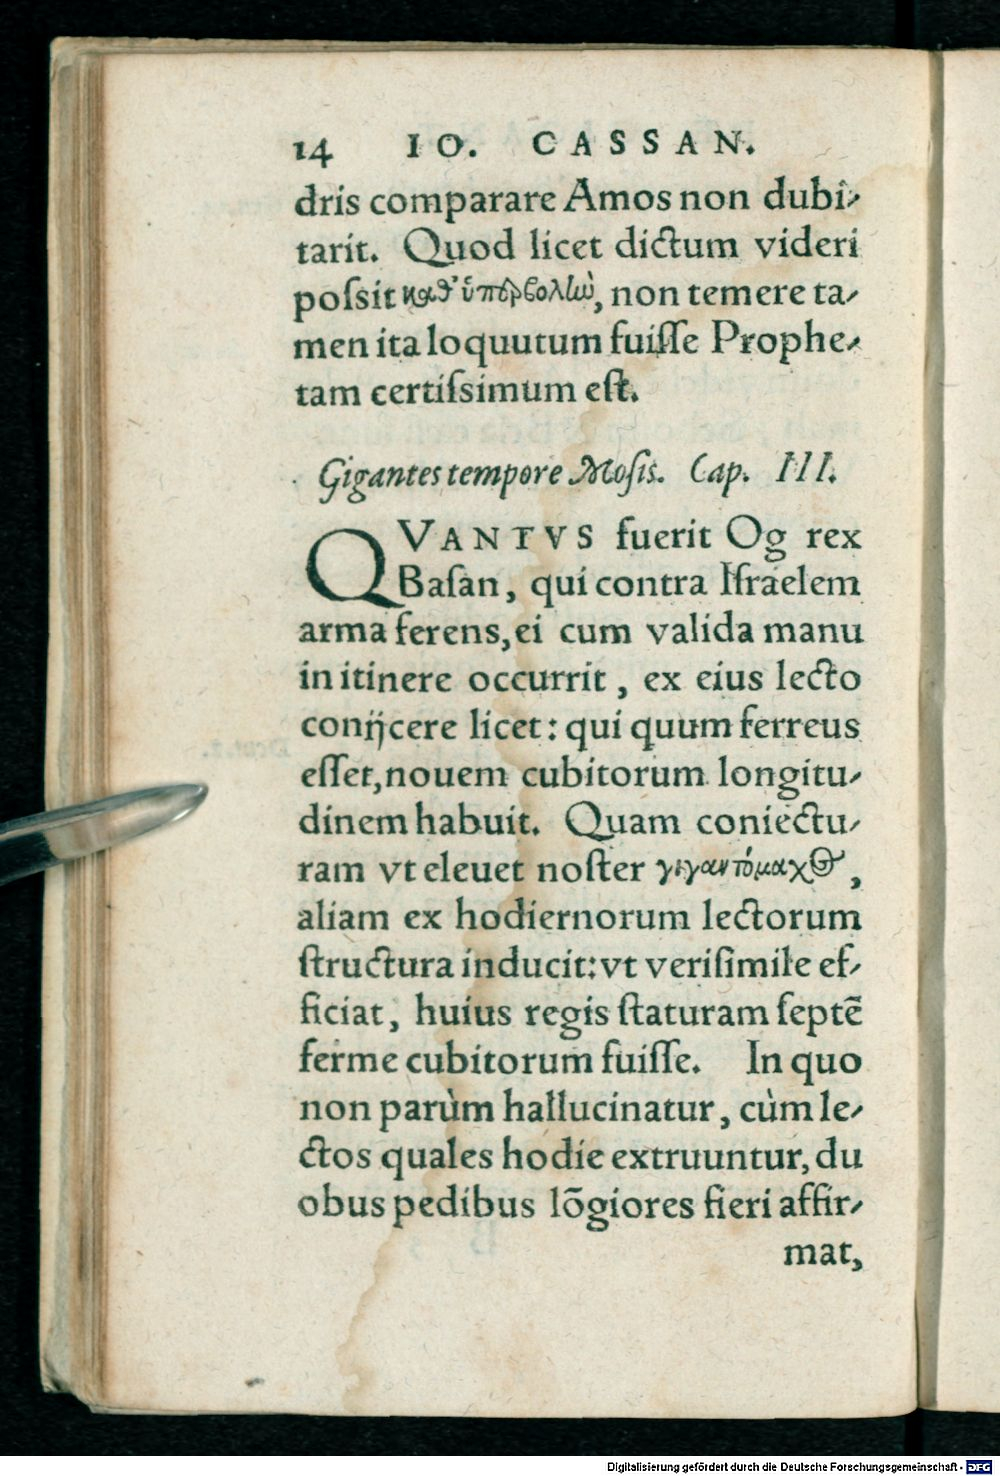 14 IO. CASSAN.
dris comparare Amos non dubi-
tarit. Quod licet dictum videri
poſsit καθ' ὑπερβολὼ, non temere ta-
men ita loquutum fuiſſe Prophe-
tam certiſsimum eſt.
Gigantes tempore Moſis. Cap. III.
QVANTVS fuerit Og rex
Baſan, qui contra Iſraelem
arma ferens, ei cum valida manu
in itinere occurrit, ex eius lecto
conijcere licet: qui quum ferreus
eſſet, nouem cubitorum longitu-
dinem habuit. Quam coniectu-
ram vt eleuet noſter γιγαντόμαχος,
aliam ex hodiernorum lectorum
ſtructura inducit: vt veriſimile ef-
ficiat, huius regis ſtaturam ſeptē
ferme cubitorum fuiſſe. In quo
non parùm hallucinatur, cùm le-
ctos quales hodie extruuntur, du
obus pedibus lōgiores fieri affir-
mat,
Digitalisierung gefördert durch die Deutsche Forschungsgemeinschaft - DFG